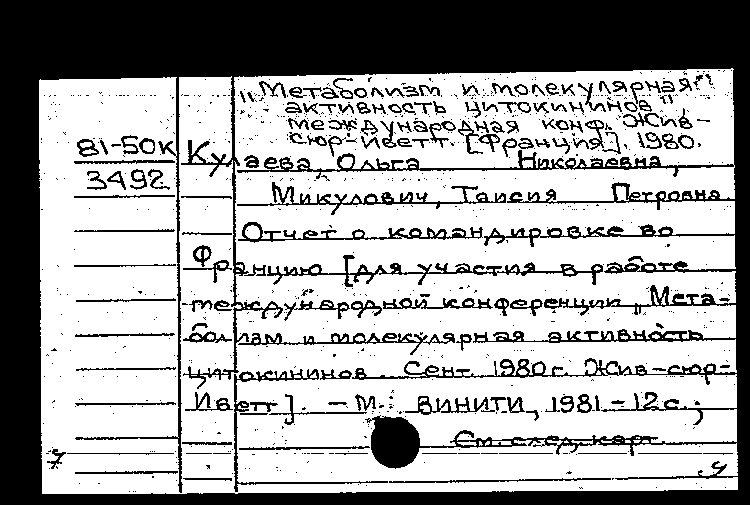 „Метаболизм и молекулярная
активность цитокининов",
международная конф. Жив-
сюр-Иветт. [Франция]. 1980.
81-50К
3492
Кулаева, Ольга Николаевна,
Микулович, Таисия Петровна.
Отчет о командировке во
Францию [для участия в работе
международной конференции „Мета-
болизм и молекулярная активность
цитокининов. Сент. 1980г. Жив-сюр-
Иветт]. - М.: ВИНИТИ, 1981 - 12с.;
См. след. карт.